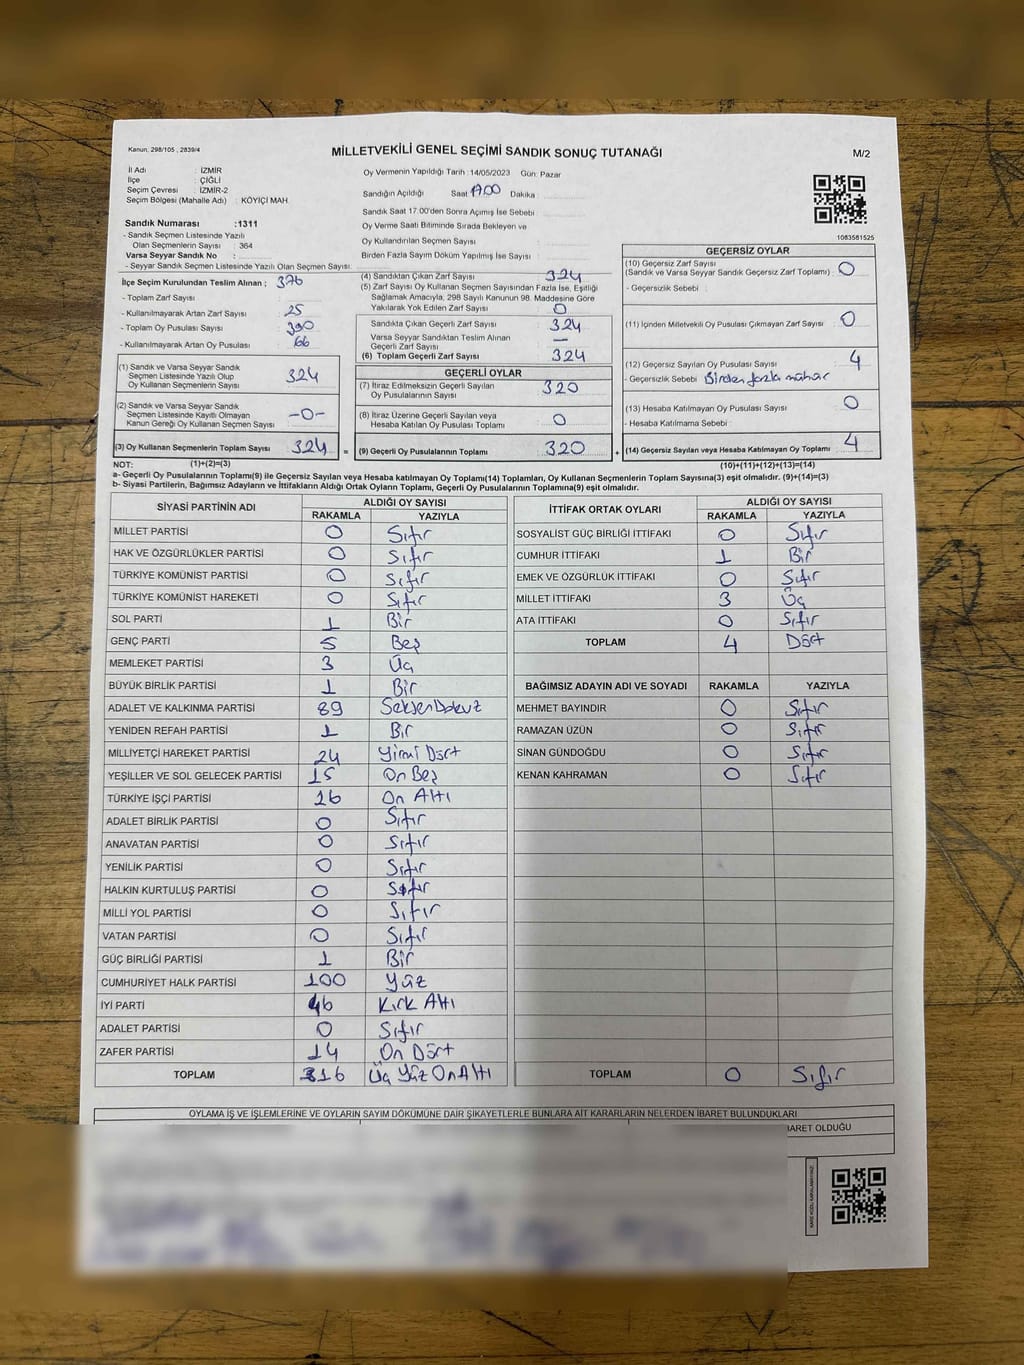 Kanun, 298/105 , 2839/4
MİLLETVEKİLİ GENEL SEÇİMİ SANDIK SONUÇ TUTANAĞI
M/2
İl Adı : İZMİR
İlçe : ÇİĞLİ
Seçim Çevresi : İZMİR-2
Seçim Bölgesi (Mahalle Adı) : KÖYİÇİ MAH.
Sandık Numarası :1311
- Sandık Seçmen Listesinde Yazılı
Olan Seçmenlerin Sayısı : 364
Varsa Seyyar Sandık No :
- Seyyar Sandık Seçmen Listesinde Yazılı Olan Seçmen Sayısı
Oy Vermenin Yapıldığı Tarih :14/05/2023 Gün: Pazar
Sandığın Açıldığı Saat 17.00 Dakika :
Sandık Saat 17.00'den Sonra Açımış İse Sebebi
Oy Verme Saati Bitiminde Sırada Bekleyen ve
Oy Kullandırılan Seçmen Sayısı
Birden Fazla Sayım Döküm Yapılmış İse Sayısı :
1083581525
İlçe Seçim Kurulundan Teslim Alınan ; 376
- Toplam Zarf Sayısı :
- Kullanılmayarak Artan Zarf Sayısı : 25
- Toplam Oy Pusulası Sayısı : 390
- Kullanılmayarak Artan Oy Pusulası : 66
(1) Sandık ve Varsa Seyyar Sandık
Seçmen Listesinde Yazılı Olup
Oy Kullanan Seçmenlerin Sayısı 324
(2) Sandık ve Varsa Seyyar Sandık
Seçmen Listesinde Kayıtlı Olmayan
Kanun Gereği Oy Kullanan Seçmen Sayısı -0-
(3) Oy Kullanan Seçmenlerin Toplam Sayısı 324 =
(4) Sandıktan Çıkan Zarf Sayısı 324
(5) Zarf Sayısı Oy Kullanan Seçmen Sayısından Fazla İse, Eşitliği
Sağlamak Amacıyla, 298 Sayılı Kanunun 98. Maddesine Göre
Yakılarak Yok Edilen Zarf Sayısı 0
Sandıkta Çıkan Geçerli Zarf Sayısı 324
Varsa Seyyar Sandıktan Teslim Alınan
Geçerli Zarf Sayısı —
(6) Toplam Geçerli Zarf Sayısı 324
GEÇERLİ OYLAR
(7) İtiraz Edilmeksizin Geçerli Sayılan
Oy Pusulalarının Sayısı 320
(8) İtiraz Üzerine Geçerli Sayılan veya
Hesaba Katılan Oy Pusulası Toplamı 0
(9) Geçerli Oy Pusulalarının Toplamı 320 +
GEÇERSİZ OYLAR
(10) Geçersiz Zarf Sayısı
(Sandık ve Varsa Seyyar Sandık Geçersiz Zarf Toplamı) : 0
- Geçersizlik Sebebi :
(11) İçinden Milletvekili Oy Pusulası Çıkmayan Zarf Sayısı : 0
(12) Geçersiz Sayılan Oy Pusulası Sayısı 4
- Geçersizlik Sebebi : Birden fazla mühür
(13) Hesaba Katılmayan Oy Pusulası Sayısı : 0
- Hesaba Katılmama Sebebi :
(14) Geçersiz Sayılan veya Hesaba Katılmayan Oy Toplamı 4
NOT: (1)+(2)=(3) (10)+(11)+(12)+(13)=(14)
a- Geçerli Oy Pusulalarının Toplamı(9) ile Geçersiz Sayılan veya Hesaba katılmayan Oy Toplamı(14) Toplamları, Oy Kullanan Seçmenlerin Toplam Sayısına(3) eşit olmalıdır. (9)+(14)=(3)
b- Siyasi Partilerin, Bağımsız Adayların ve İttifakların Aldığı Ortak Oyların Toplamı, Geçerli Oy Pusulalarının Toplamına(9) eşit olmalıdır.
SİYASİ PARTİNİN ADI ALDIĞI OY SAYISI
RAKAMLA YAZIYLA
MİLLET PARTİSİ 0 Sıfır
HAK VE ÖZGÜRLÜKLER PARTİSİ 0 Sıfır
TÜRKİYE KOMÜNİST PARTİSİ 0 Sıfır
TÜRKİYE KOMÜNİST HAREKETİ 0 Sıfır
SOL PARTİ 1 Bir
GENÇ PARTİ 5 Beş
MEMLEKET PARTİSİ 3 Üç
BÜYÜK BİRLİK PARTİSİ 1 Bir
ADALET VE KALKINMA PARTİSİ 89 Seksen Dokuz
YENİDEN REFAH PARTİSİ 1 Bir
MİLLİYETÇİ HAREKET PARTİSİ 24 Yirmi Dört
YEŞİLLER VE SOL GELECEK PARTİSİ 15 On Beş
TÜRKİYE İŞÇİ PARTİSİ 16 On Altı
ADALET BİRLİK PARTİSİ 0 Sıfır
ANAVATAN PARTİSİ 0 Sıfır
YENİLİK PARTİSİ 0 Sıfır
HALKIN KURTULUŞ PARTİSİ 0 Sıfır
MİLLİ YOL PARTİSİ 0 Sıfır
VATAN PARTİSİ 0 Sıfır
GÜÇ BİRLİĞİ PARTİSİ 1 Bir
CUMHURİYET HALK PARTİSİ 100 Yüz
İYİ PARTİ 46 Kırk Altı
ADALET PARTİSİ 0 Sıfır
ZAFER PARTİSİ 14 On Dört
TOPLAM 316 Üç Yüz On Altı
İTTİFAK ORTAK OYLARI ALDIĞI OY SAYISI
RAKAMLA YAZIYLA
SOSYALİST GÜÇ BİRLİĞİ İTTİFAKI 0 Sıfır
CUMHUR İTTİFAKI 1 Bir
EMEK VE ÖZGÜRLÜK İTTİFAKI 0 Sıfır
MİLLET İTTİFAKI 3 Üç
ATA İTTİFAKI 0 Sıfır
TOPLAM 4 Dört
BAĞIMSIZ ADAYIN ADI VE SOYADI RAKAMLA YAZIYLA
MEHMET BAYINDIR 0 Sıfır
RAMAZAN ÜZÜN 0 Sıfır
SİNAN GÜNDOĞDU 0 Sıfır
KENAN KAHRAMAN 0 Sıfır
TOPLAM 0 Sıfır
OYLAMA İŞ VE İŞLEMLERİNE VE OYLARIN SAYIM DÖKÜMÜNE DAİR ŞİKAYETLERLE BUNLARA AİT KARARLARIN NELERDEN İBARET BULUNDUKLARI
BARET OLDUĞU